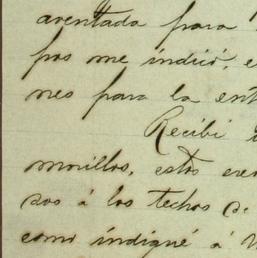 aventada para
pos me indicó, e
nes para la ent
Recibi
morillos, estos eren
dos á los techos de
como indiqué á V